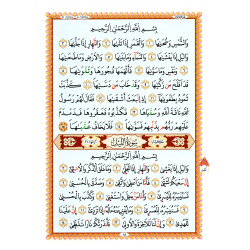 بِسْمِ ٱللَّهِ ٱلرَّحْمَٰنِ ٱلرَّحِيمِ
وَٱلشَّمْسِ وَضُحَىٰهَا ١ وَٱلْقَمَرِ إِذَا تَلَىٰهَا ٢ وَٱلنَّهَارِ إِذَا جَلَّىٰهَا ٣
وَٱلَّيْلِ إِذَا يَغْشَىٰهَا ٤ وَٱلسَّمَآءِ وَمَا بَنَىٰهَا ٥ وَٱلْأَرْضِ وَمَا طَحَىٰهَا ٦
وَنَفْسٍ وَمَا سَوَّىٰهَا ٧ فَأَلْهَمَهَا فُجُورَهَا وَتَقْوَىٰهَا ٨
قَدْ أَفْلَحَ مَن زَكَّىٰهَا ٩ وَقَدْ خَابَ مَن دَسَّىٰهَا ١٠ كَذَّبَتْ
ثَمُودُ بِطَغْوَىٰهَآ ١١ إِذِ ٱنۢبَعَثَ أَشْقَىٰهَا ١٢ فَقَالَ لَهُمْ رَسُولُ
ٱللَّهِ نَاقَةَ ٱللَّهِ وَسُقْيَٰهَا ١٣ فَكَذَّبُوهُ فَعَقَرُوهَا فَدَمْدَمَ
عَلَيْهِمْ رَبُّهُم بِذَنۢبِهِمْ فَسَوَّىٰهَا ١٤ فَلَا يَخَافُ عُقْبَٰهَا ١٥
سُورَةُ ٱللَّيْلِ
بِسْمِ ٱللَّهِ ٱلرَّحْمَٰنِ ٱلرَّحِيمِ
وَٱلَّيْلِ إِذَا يَغْشَىٰ ١ وَٱلنَّهَارِ إِذَا تَجَلَّىٰ ٢ وَمَا خَلَقَ ٱلذَّكَرَ وَٱلْأُنثَىٰٓ ٣
إِنَّ سَعْيَكُمْ لَشَتَّىٰ ٤ فَأَمَّا مَنْ أَعْطَىٰ وَٱتَّقَىٰ ٥ وَصَدَّقَ بِٱلْحُسْنَىٰ ٦
فَسَنُيَسِّرُهُۥ لِلْيُسْرَىٰ ٧ وَأَمَّا مَنۢ بَخِلَ وَٱسْتَغْنَىٰ ٨ وَكَذَّبَ بِٱلْحُسْنَىٰ ٩
فَسَنُيَسِّرُهُۥ لِلْعُسْرَىٰ ١٠ وَمَا يُغْنِى عَنْهُ مَالُهُۥٓ إِذَا تَرَدَّىٰٓ ١١ إِنَّ عَلَيْنَا
لَلْهُدَىٰ ١٢ وَإِنَّ لَنَا لَلْءَاخِرَةَ وَٱلْأُولَىٰ ١٣ فَأَنذَرْتُكُمْ نَارًا تَلَظَّىٰ ١٤